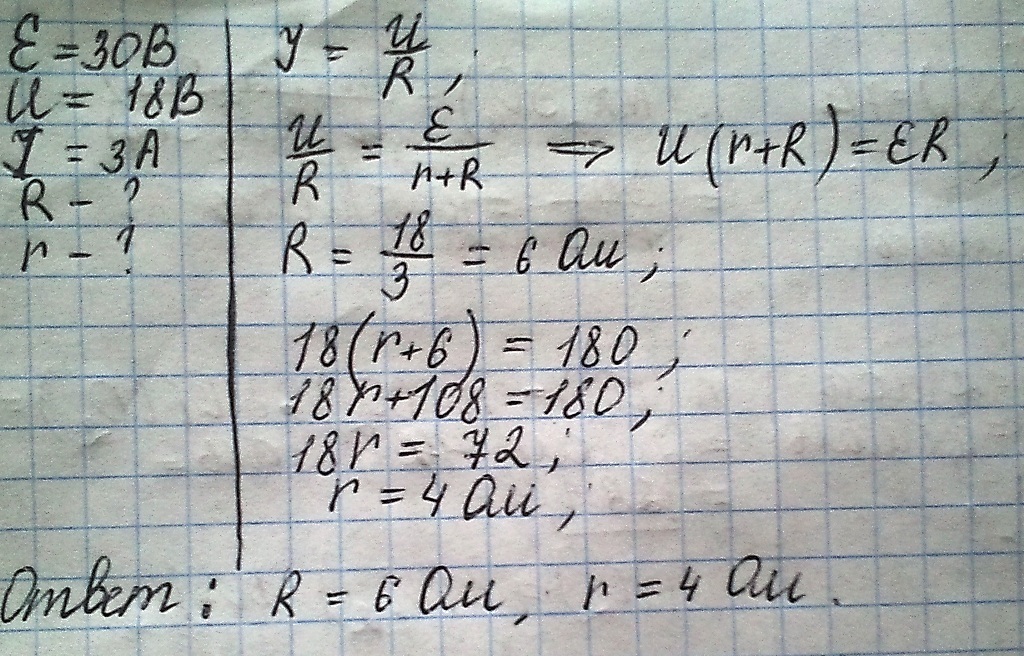 Ɛ = 30В
U = 18В
I = 3А
R - ?
r - ?
I = U/R ;
U/R = Ɛ/(r+R) => U(r+R) = ƐR ;
R = 18/3 = 6 Ом ;
18(r+6) = 180 ;
18r+108 = 180 ;
18r = 72 ;
r = 4 Ом ;
Ответ : R = 6 Ом, r = 4 Ом .